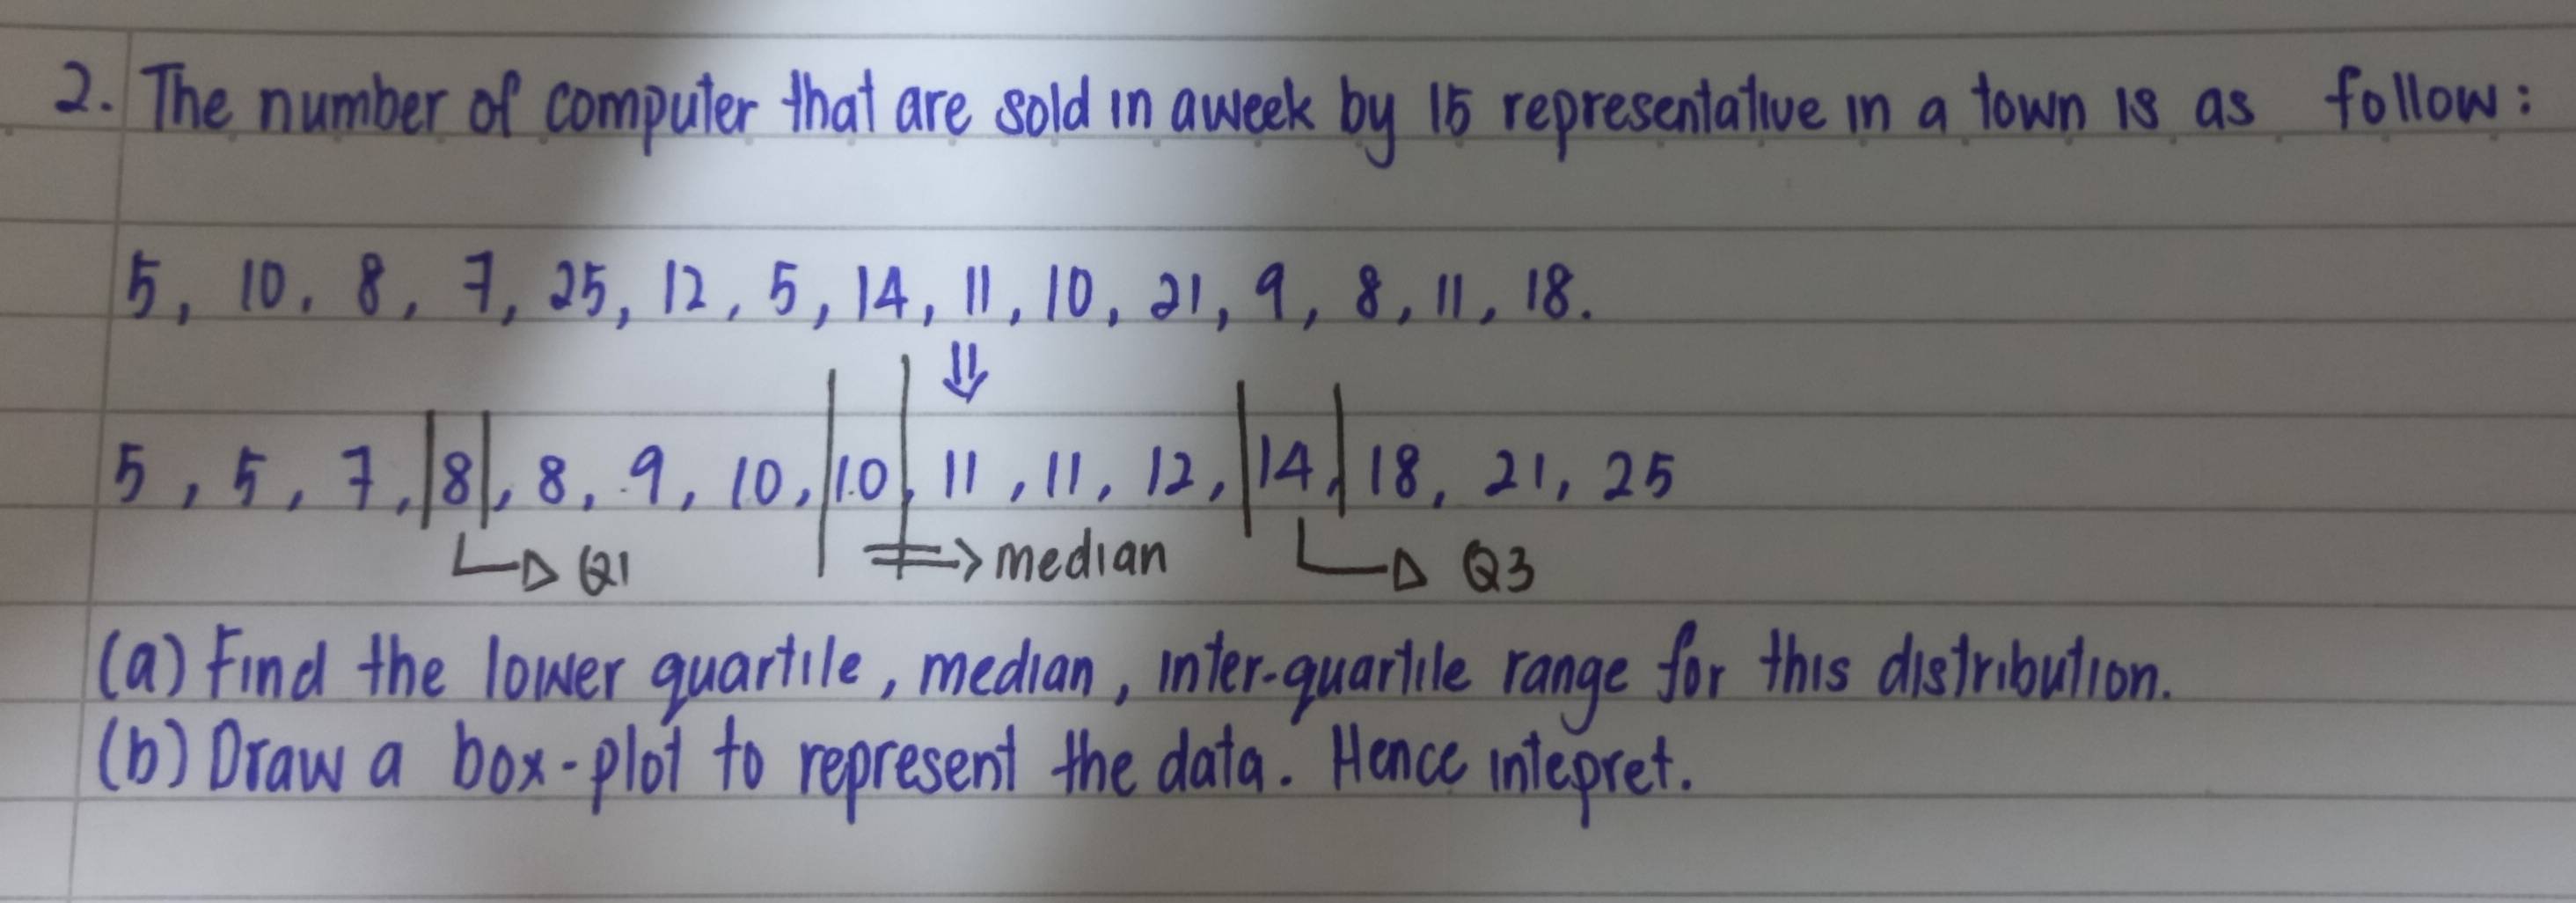 2. The number of computer that are sold in aweek by 15 representative in a town is as follow:
5, 10, 8, 7, 25, 12, 5, 14, 11, 10, 21, 9, 8, 11, 18.
⇓
5, 5, 7, |8|, 8, 9, 10, |10,| 11, 11, 12, |14,| 18, 21, 25
Q1 => median Q3
(a) Find the lower quartile, median, inter-quartile range for this distribution.
(b) Draw a box-plot to represent the data. Hence intepret.